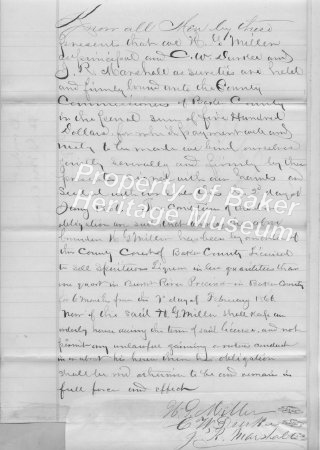 Know all Men by these
present that we H. G. Miller
as principal and C. W. Durkee and
J. R. Marshall as sureties are held
and firmly bound unto the County
Commissioners of Baker County
in the penal sum of five Hundred
Dollars for which payment well and
truly to be made we bind ourselves
jointly severally and firmly by these
presents Sealed with our Seals and
day of
The Condition of the above
obligation is such that
H G Miller has been by order of
the County Court of Baker County licensed
to sell Spiritous Liquors in less quantities than
one quart in Burnt River Precinct in Baker County
for 6 months from the day of February 186
Now if the said H G Miller shall keep an
orderly house during the term of said license and not
permit any unlawful gaming or riotous conduct
in or about his house then this obligation
shall be void otherwise to be and remain in
full force and effect
H G Miller
C W Durkee
J. R. Marshall
Property Of Baker
Heritage Museum